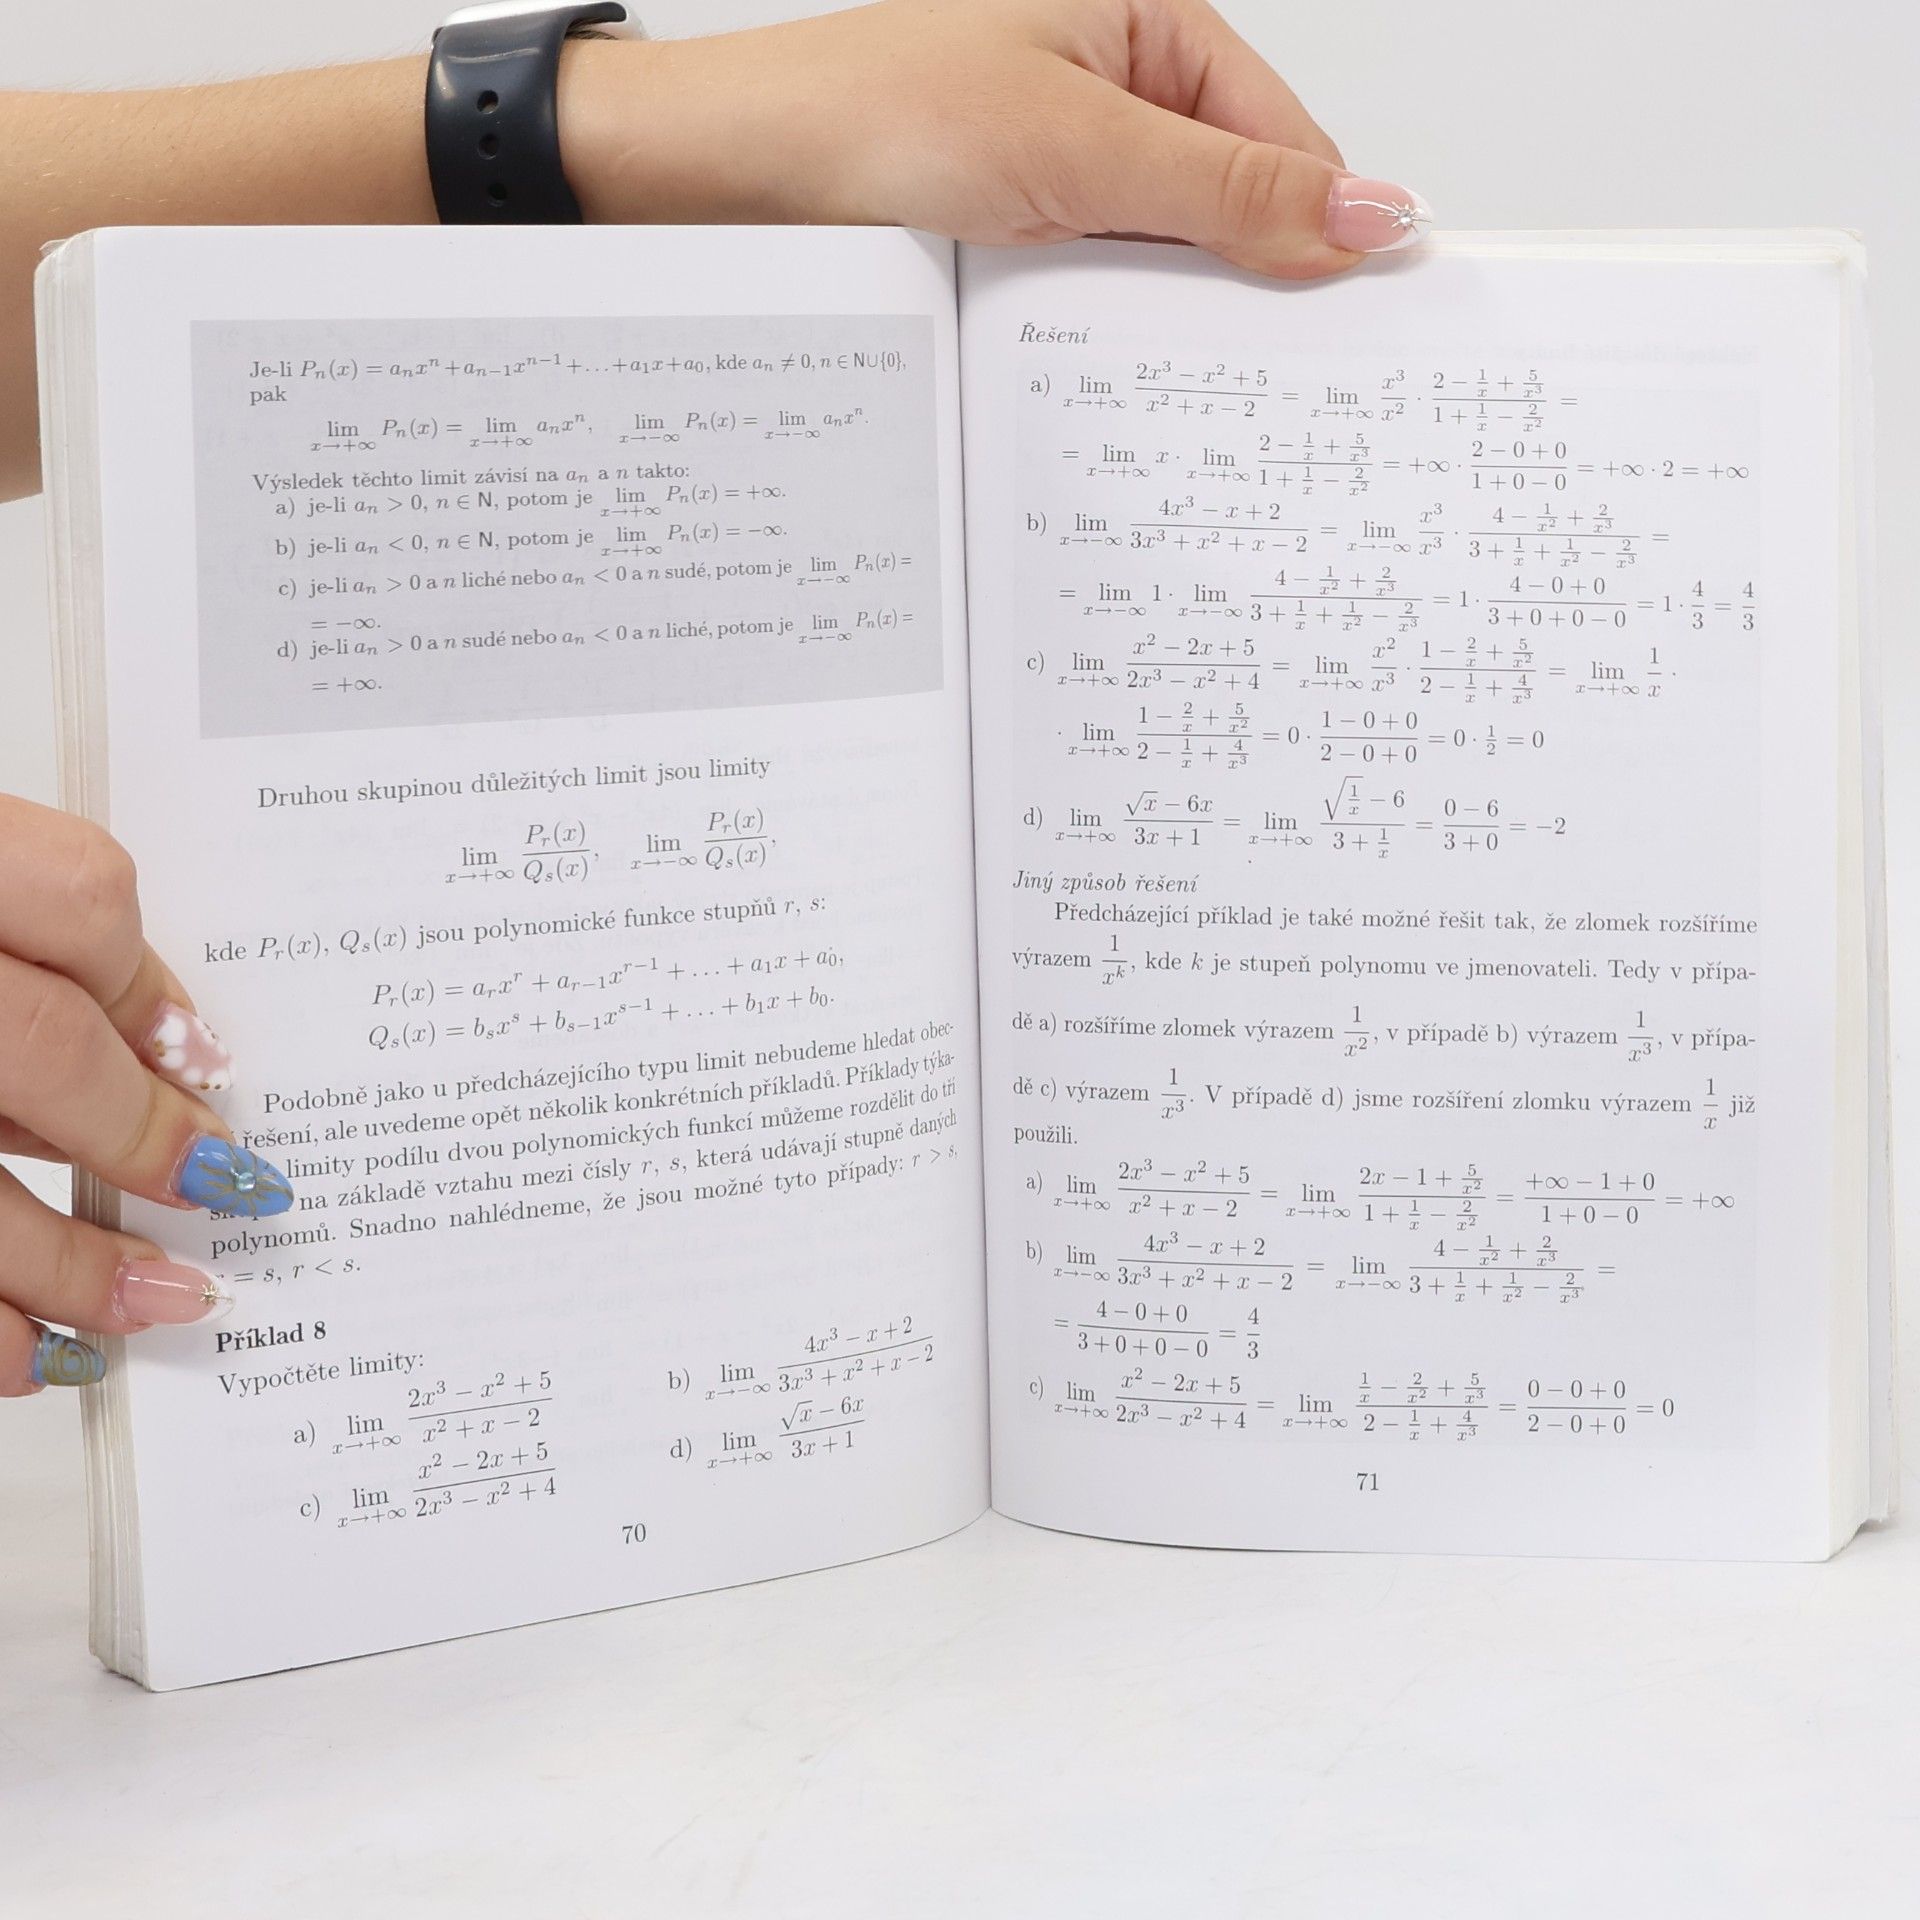 Je-li Pₙ(x) = aₙxⁿ + aₙ₋₁xⁿ⁻¹ + … + a₁x + a₀, kde aₙ ≠ 0, n ∈ N∪{0},
pak
lim_{x→+∞} Pₙ(x) = lim_{x→+∞} aₙxⁿ, lim_{x→−∞} Pₙ(x) = lim_{x→−∞} aₙxⁿ.
Výsledek těchto limit závisí na aₙ a n takto:
a) je-li aₙ > 0, n ∈ N, potom je lim_{x→+∞} Pₙ(x) = +∞.
b) je-li aₙ < 0, n ∈ N, potom je lim_{x→+∞} Pₙ(x) = −∞.
c) je-li aₙ > 0 a n liché nebo aₙ < 0 a n sudé, potom je lim_{x→−∞} Pₙ(x) =
= −∞.
d) je-li aₙ > 0 a n sudé nebo aₙ < 0 a n liché, potom je lim_{x→−∞} Pₙ(x) =
= +∞.
Druhou skupinou důležitých limit jsou limity
lim_{x→+∞} Pᵣ(x)/Qₛ(x), lim_{x→−∞} Pᵣ(x)/Qₛ(x),
kde Pᵣ(x), Qₛ(x) jsou polynomické funkce stupňů r, s:
Pᵣ(x) = aᵣxʳ + aᵣ₋₁xʳ⁻¹ + … + a₁x + a₀,
Qₛ(x) = bₛxˢ + bₛ₋₁xˢ⁻¹ + … + b₁x + b₀.
Podobně jako u předcházejícího typu limit nebudeme hledat obec-
řešení, ale uvedeme opět několik konkrétních příkladů. Příklady týka-
limity podílu dvou polynomických funkcí můžeme rozdělit do tří
na základě vztahu mezi čísly r, s, která udávají stupně daných
polynomů. Snadno nahlédneme, že jsou možné tyto případy: r > s,
= s, r < s.
Příklad 8
Vypočtěte limity:
a) lim_{x→+∞} (2x³ − x² + 5)/(x² + x − 2) b) lim_{x→−∞} (4x³ − x + 2)/(3x³ + x² + x − 2)
c) lim_{x→+∞} (x² − 2x + 5)/(2x³ − x² + 4) d) lim_{x→+∞} (√x − 6x)/(3x + 1)
70
Řešení
a) lim_{x→+∞} (2x³ − x² + 5)/(x² + x − 2) = lim_{x→+∞} x³/x² · (2 − 1/x + 5/x³)/(1 + 1/x − 2/x²) =
= lim_{x→+∞} x · lim_{x→+∞} (2 − 1/x + 5/x³)/(1 + 1/x − 2/x²) = +∞ · (2 − 0 + 0)/(1 + 0 − 0) = +∞ · 2 = +∞
b) lim_{x→−∞} (4x³ − x + 2)/(3x³ + x² + x − 2) = lim_{x→−∞} x³/x³ · (4 − 1/x² + 2/x³)/(3 + 1/x + 1/x² − 2/x³) =
= lim_{x→−∞} 1 · lim_{x→−∞} (4 − 1/x² + 2/x³)/(3 + 1/x + 1/x² − 2/x³) = 1 · (4 − 0 + 0)/(3 + 0 + 0 − 0) = 1 · 4/3 = 4/3
c) lim_{x→+∞} (x² − 2x + 5)/(2x³ − x² + 4) = lim_{x→+∞} x²/x³ · (1 − 2/x + 5/x²)/(2 − 1/x + 4/x³) = lim_{x→+∞} 1/x ·
· lim_{x→+∞} (1 − 2/x + 5/x²)/(2 − 1/x + 4/x³) = 0 · (1 − 0 + 0)/(2 − 0 + 0) = 0 · 1/2 = 0
d) lim_{x→+∞} (√x − 6x)/(3x + 1) = lim_{x→+∞} (√(1/x) − 6)/(3 + 1/x) = (0 − 6)/(3 + 0) = −2
Jiný způsob řešení
Předcházející příklad je také možné řešit tak, že zlomek rozšíříme
výrazem 1/xᵏ, kde k je stupeň polynomu ve jmenovateli. Tedy v přípa-
dě a) rozšíříme zlomek výrazem 1/x², v případě b) výrazem 1/x³, v přípa-
dě c) výrazem 1/x³. V případě d) jsme rozšíření zlomku výrazem 1/x již
použili.
a) lim_{x→+∞} (2x³ − x² + 5)/(x² + x − 2) = lim_{x→+∞} (2x − 1 + 5/x²)/(1 + 1/x − 2/x²) = (+∞ − 1 + 0)/(1 + 0 − 0) = +∞
b) lim_{x→−∞} (4x³ − x + 2)/(3x³ + x² + x − 2) = lim_{x→−∞} (4 − 1/x² + 2/x³)/(3 + 1/x + 1/x² − 2/x³) =
= (4 − 0 + 0)/(3 + 0 + 0 − 0) = 4/3
c) lim_{x→+∞} (x² − 2x + 5)/(2x³ − x² + 4) = lim_{x→+∞} (1/x − 2/x² + 5/x³)/(2 − 1/x + 4/x³) = (0 − 0 + 0)/(2 − 0 + 0) = 0
71